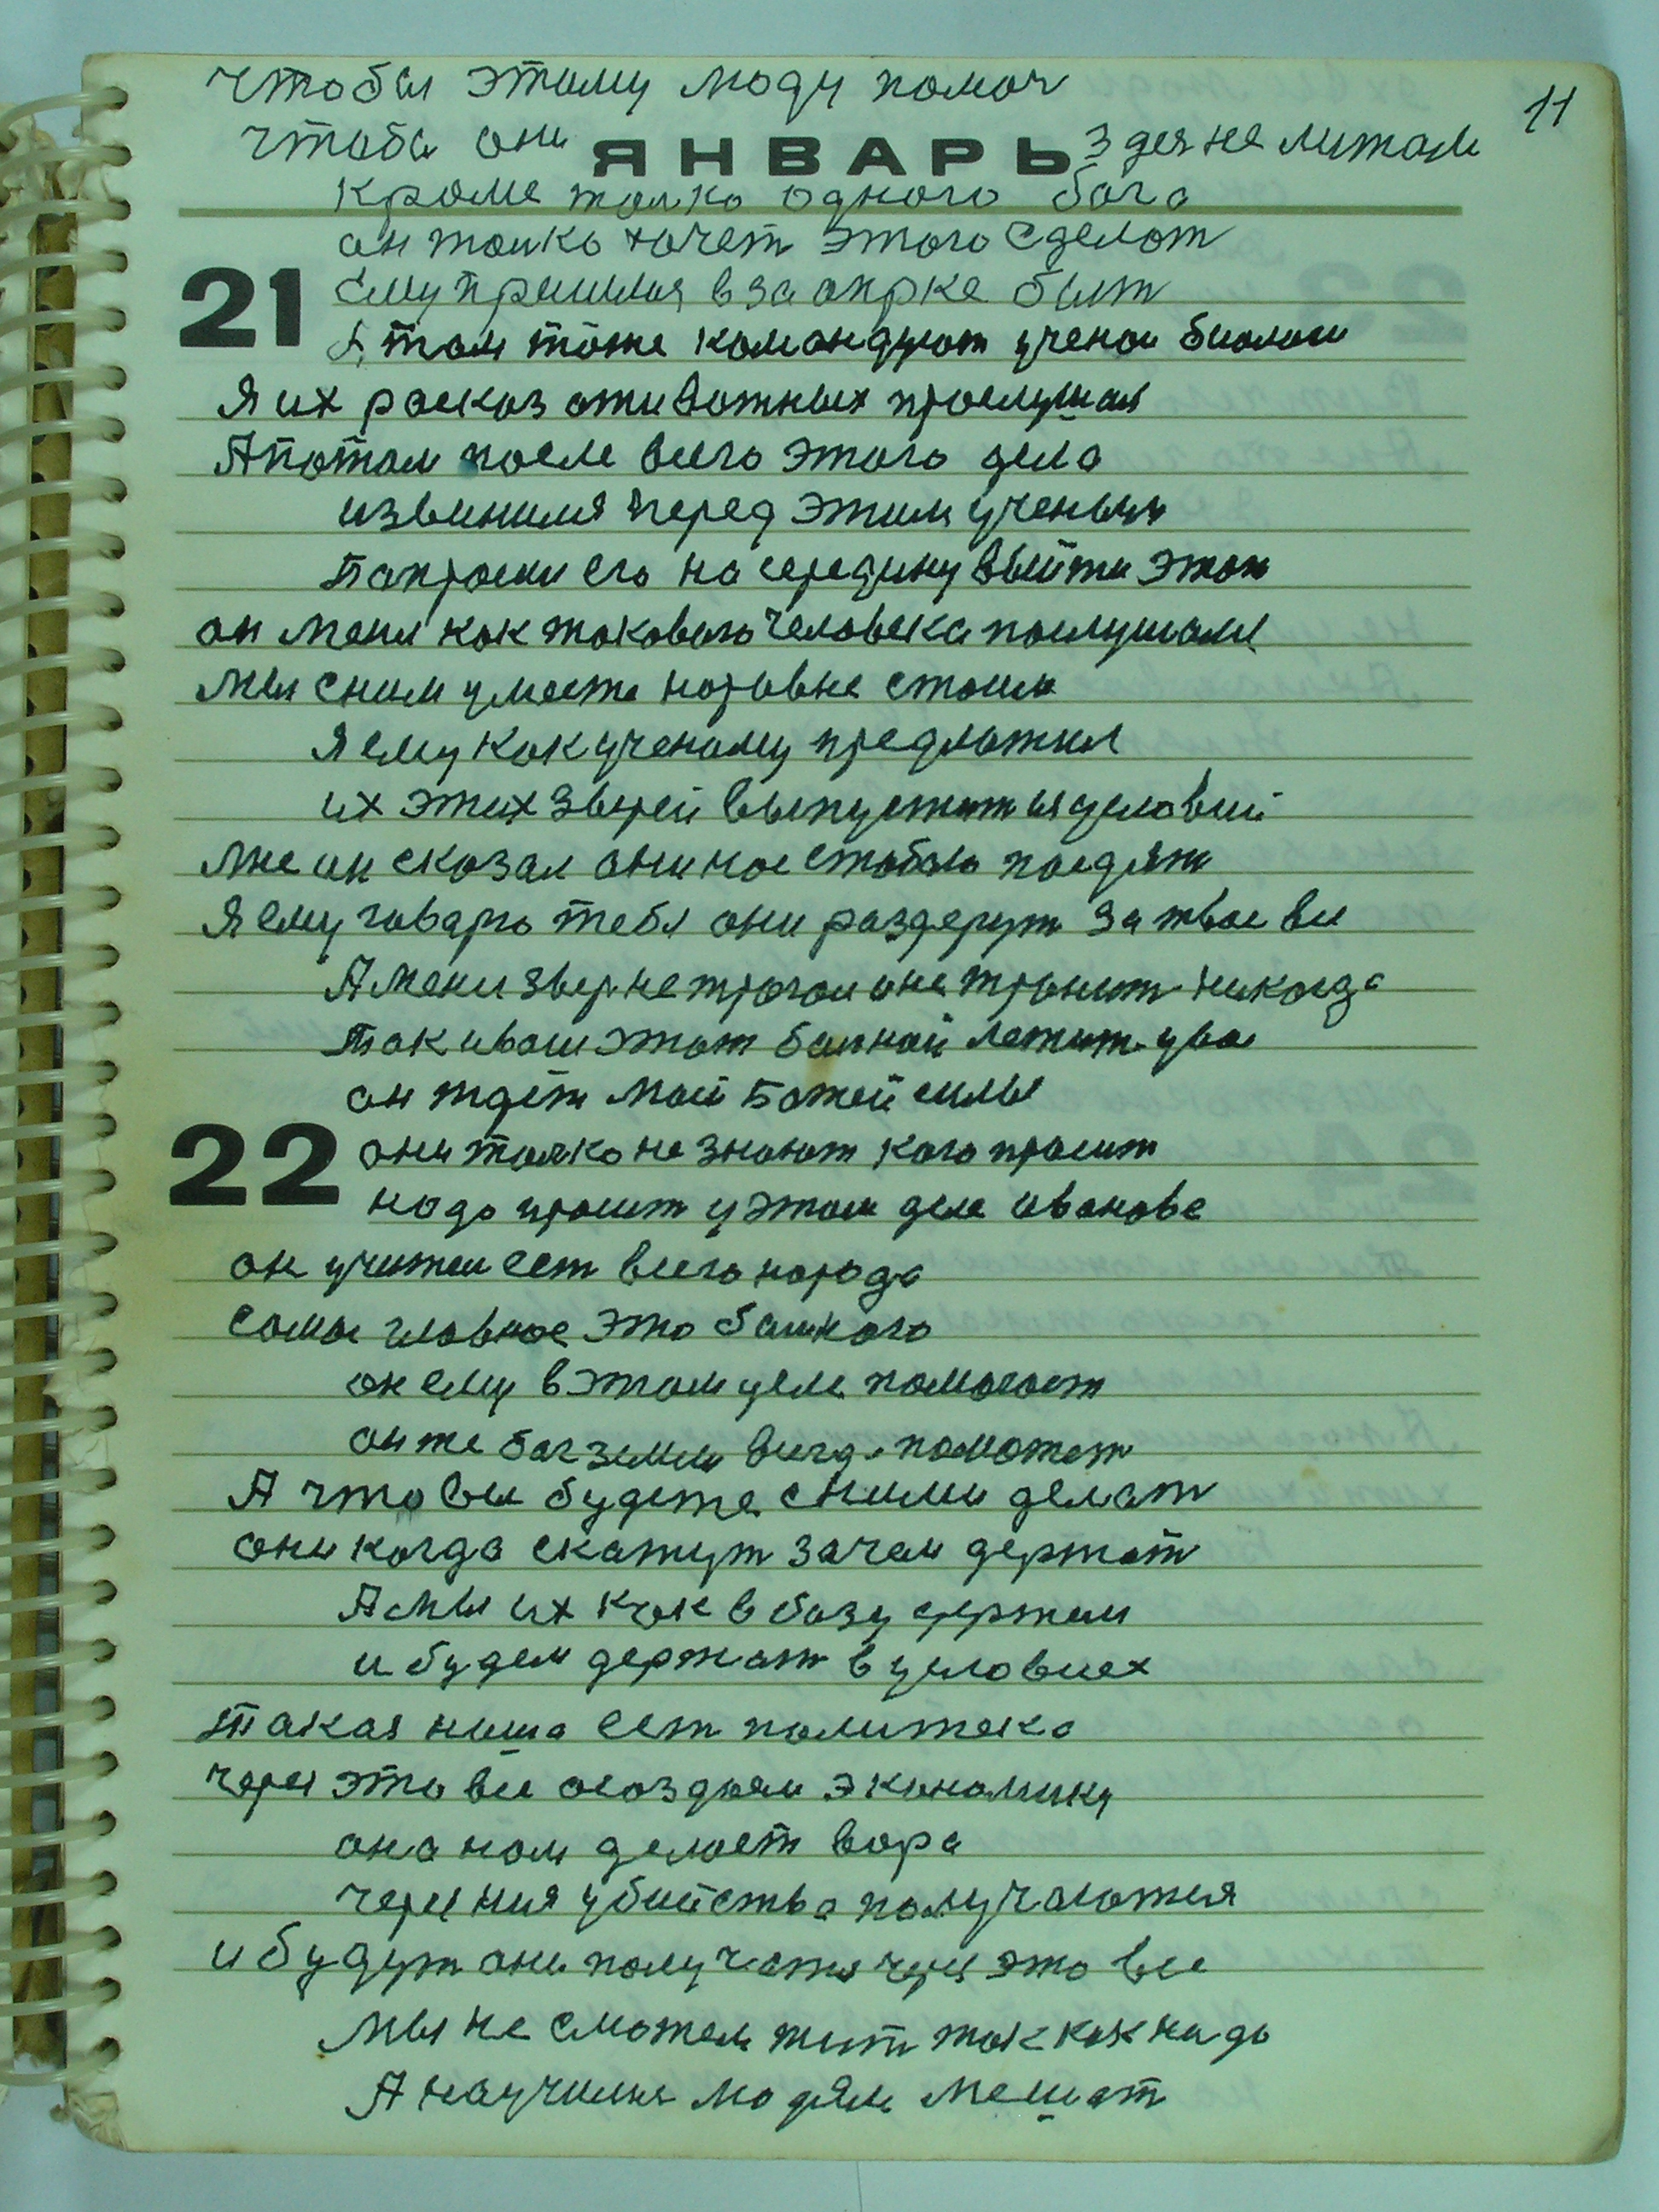 чтобы этаму люду помоч
11
чтобы они ЯНВАРЬ здеяне литали
кроме толко одного бога
он толко хочет этого сделат
21 Ему пришлоя в заапрке быт
А там тоже командуют ученаи биологи
Я их росказ о животных прослушал
А потом после всего этого дела
извинилия перед этим ученым
Папросил его на середину выйти этак
он меня как такового человека послушался
Мы с ним умести наравне стоим
Я ему как ученому предложил
их этих зверей выпустит из условий
мне он сказал они нас стобою поедят
Я ему говарю тебя они раздерут за твое все
А меня звер не трогал и не тронит никогда
Так и ваш этот болной лежит увас
он ждет маей Божей силы
22 они толко не знают кого просит
надо просит у этом деле иванова
он учител ест всего народа
Самое главное это болного
он ему в этом деле помогает
он же бог земли всегда поможет
А что вы будете сними делат
они когда скажут зачем держат
А мы их как в базу держим
и будем держат в условиех
такая наша ест политека
через это все создаем экономику
она нам делает вора
через ния убийства получаютия
и будут они получатя через это все
мы не сможем жит так как надо
А научилия людям мешат